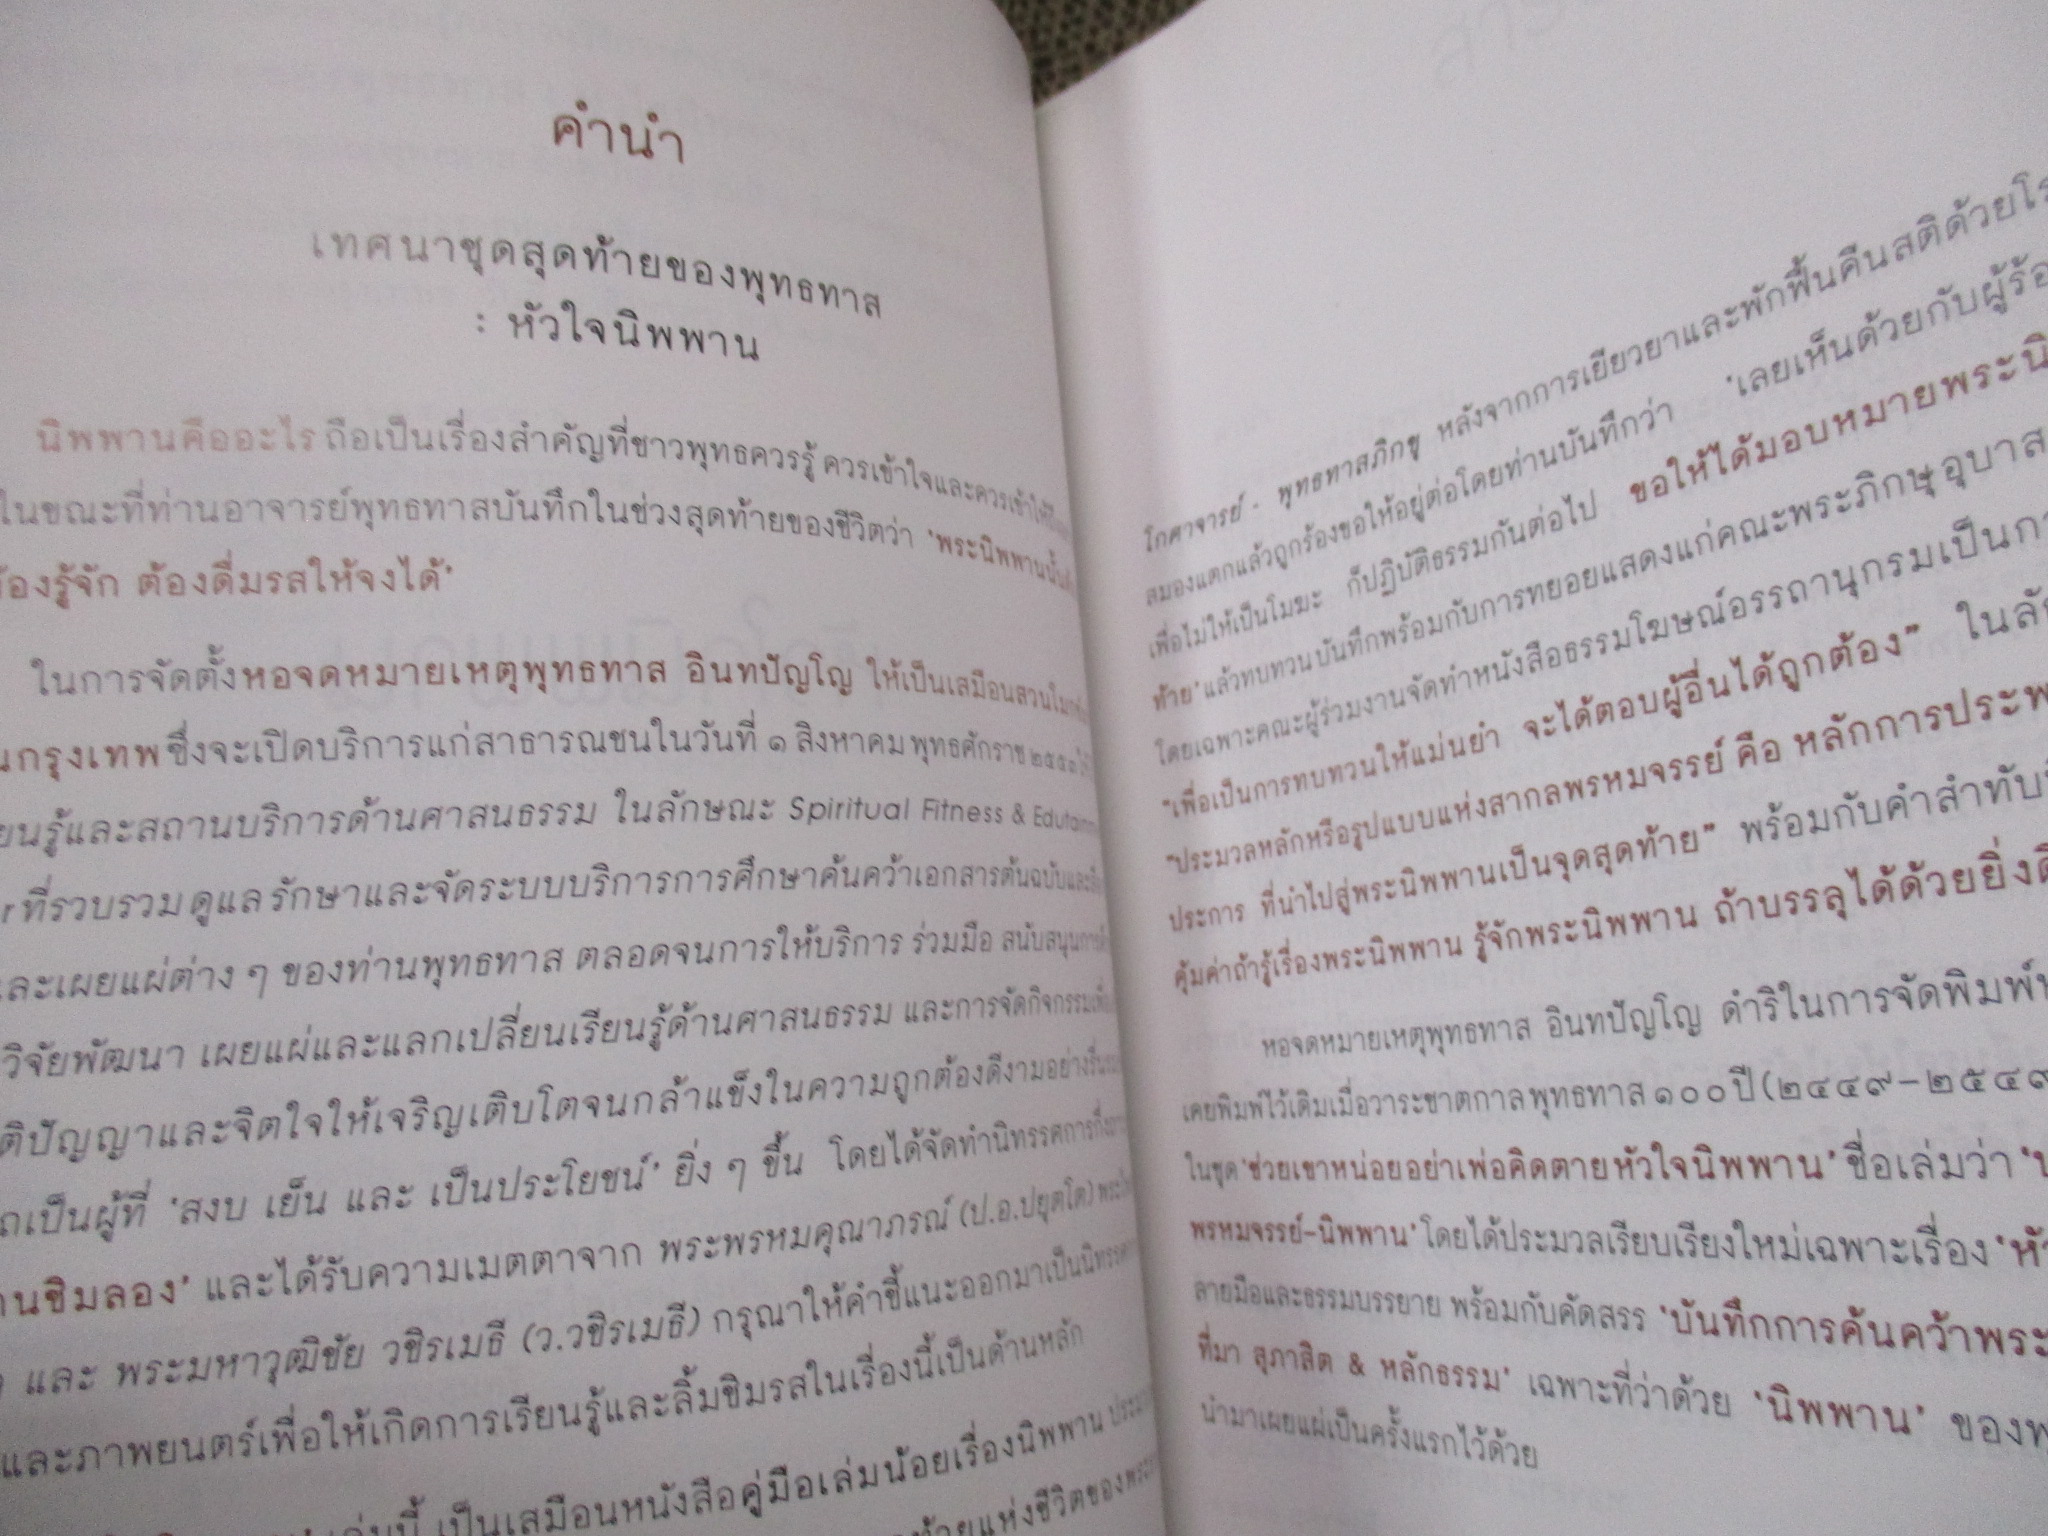 คำนำ
เทศนาชุดสุดท้ายของพุทธทาส
: หัวใจนิพพาน
นิพพานคืออะไร ถือเป็นเรื่องสำคัญที่ชาวพุทธควรรู้ ควรเข้าใจและควรเข้าให้ถึง
ในขณะที่ท่านอาจารย์พุทธทาสบันทึกในช่วงสุดท้ายของชีวิตว่า 'พระนิพพานนั้น
ต้องรู้จัก ต้องดื่มรสให้จงได้'
ในการจัดตั้งหอจดหมายเหตุพุทธทาส อินทปัญโญ ให้เป็นเสมือนสวนโมกข์
กรุงเทพ ซึ่งจะเปิดบริการแก่สาธารณชนในวันที่ ๑ สิงหาคม พุทธศักราช ๒๕๕๓
เรียนรู้และสถานบริการด้านศาสนธรรม ในลักษณะ Spiritual Fitness &
ที่รวบรวม ดูแล รักษาและจัดระบบบริการการศึกษาค้นคว้าเอกสารต้นฉบับและ
และเผยแผ่ต่าง ๆ ของท่านพุทธทาส ตลอดจนการให้บริการ ร่วมมือ สนับสนุนการ
วิจัยพัฒนา เผยแผ่และแลกเปลี่ยนเรียนรู้ด้านศาสนธรรม และการจัดกิจกรรมเพื่อ
สติปัญญาและจิตใจให้เจริญเติบโตจนกล้าแข็งในความถูกต้องดีงามอย่างรื่นรมย์
เป็นผู้ที่ 'สงบ เย็น และ เป็นประโยชน์' ยิ่ง ๆ ขึ้น โดยได้จัดทำนิทรรศการกึ่ง
ชิมลอง' และได้รับความเมตตาจาก พระพรหมคุณาภรณ์ (ป.อ.ปยุตโต)
และ พระมหาวุฒิชัย วชิรเมธี (ว.วชิรเมธี) กรุณาให้คำชี้แนะออกมาเป็นนิทรรศการ
และภาพยนตร์เพื่อให้เกิดการเรียนรู้และลิ้มชิมรสในเรื่องนี้เป็นด้านหลัก
เล่มนี้ เป็นเสมือนหนังสือคู่มือเล่มน้อยเรื่องนิพพาน
แห่งชีวิตของ
โกศาจารย์ - พุทธทาสภิกขุ หลังจากการเยียวยาและพักฟื้นคืนสติด้วยโรค
สมองแตกแล้วถูกร้องขอให้อยู่ต่อโดยท่านบันทึกว่า 'เลยเห็นด้วยกับผู้ร้อง
เพื่อไม่ให้เป็นโมฆะ ก็ปฏิบัติธรรมกันต่อไป ขอให้ได้มอบหมายพระ
ท้าย' แล้วทบทวนบันทึกพร้อมกับการทยอยแสดงแก่คณะพระภิกษุ
โดยเฉพาะคณะผู้ร่วมงานจัดทำหนังสือธรรมโฆษณ์อรรถานุกรมเป็น
"เพื่อเป็นการทบทวนให้แม่นยำ จะได้ตอบผู้อื่นได้ถูกต้อง" ใน
"ประมวลหลักหรือรูปแบบแห่งสากลพรหมจรรย์ คือ หลักการ
ประการ ที่นำไปสู่พระนิพพานเป็นจุดสุดท้าย" พร้อมกับคำสำทับ
คุ้มค่าถ้ารู้เรื่องพระนิพพาน รู้จักพระนิพพาน ถ้าบรรลุได้ด้วยยิ่ง
หอจดหมายเหตุพุทธทาส อินทปัญโญ ดำริในการจัดพิมพ์
เคยพิมพ์ไว้เดิมเมื่อวาระชาตกาลพุทธทาส ๑๐๐ ปี (๒๔๔๙-๒๕๔๙
ในชุด 'ช่วยเขาหน่อยอย่าเพ่อคิดตายหัวใจนิพพาน' ชื่อเล่มว่า
พรหมจรรย์-นิพพาน' โดยได้ประมวลเรียบเรียงใหม่เฉพาะเรื่อง
ลายมือและธรรมบรรยาย พร้อมกับคัดสรร 'บันทึกการค้นคว้าพระ
ที่มา สุภาสิต & หลักธรรม' เฉพาะที่ว่าด้วย 'นิพพาน' ของ
นำมาเผยแผ่เป็นครั้งแรกไว้ด้วย